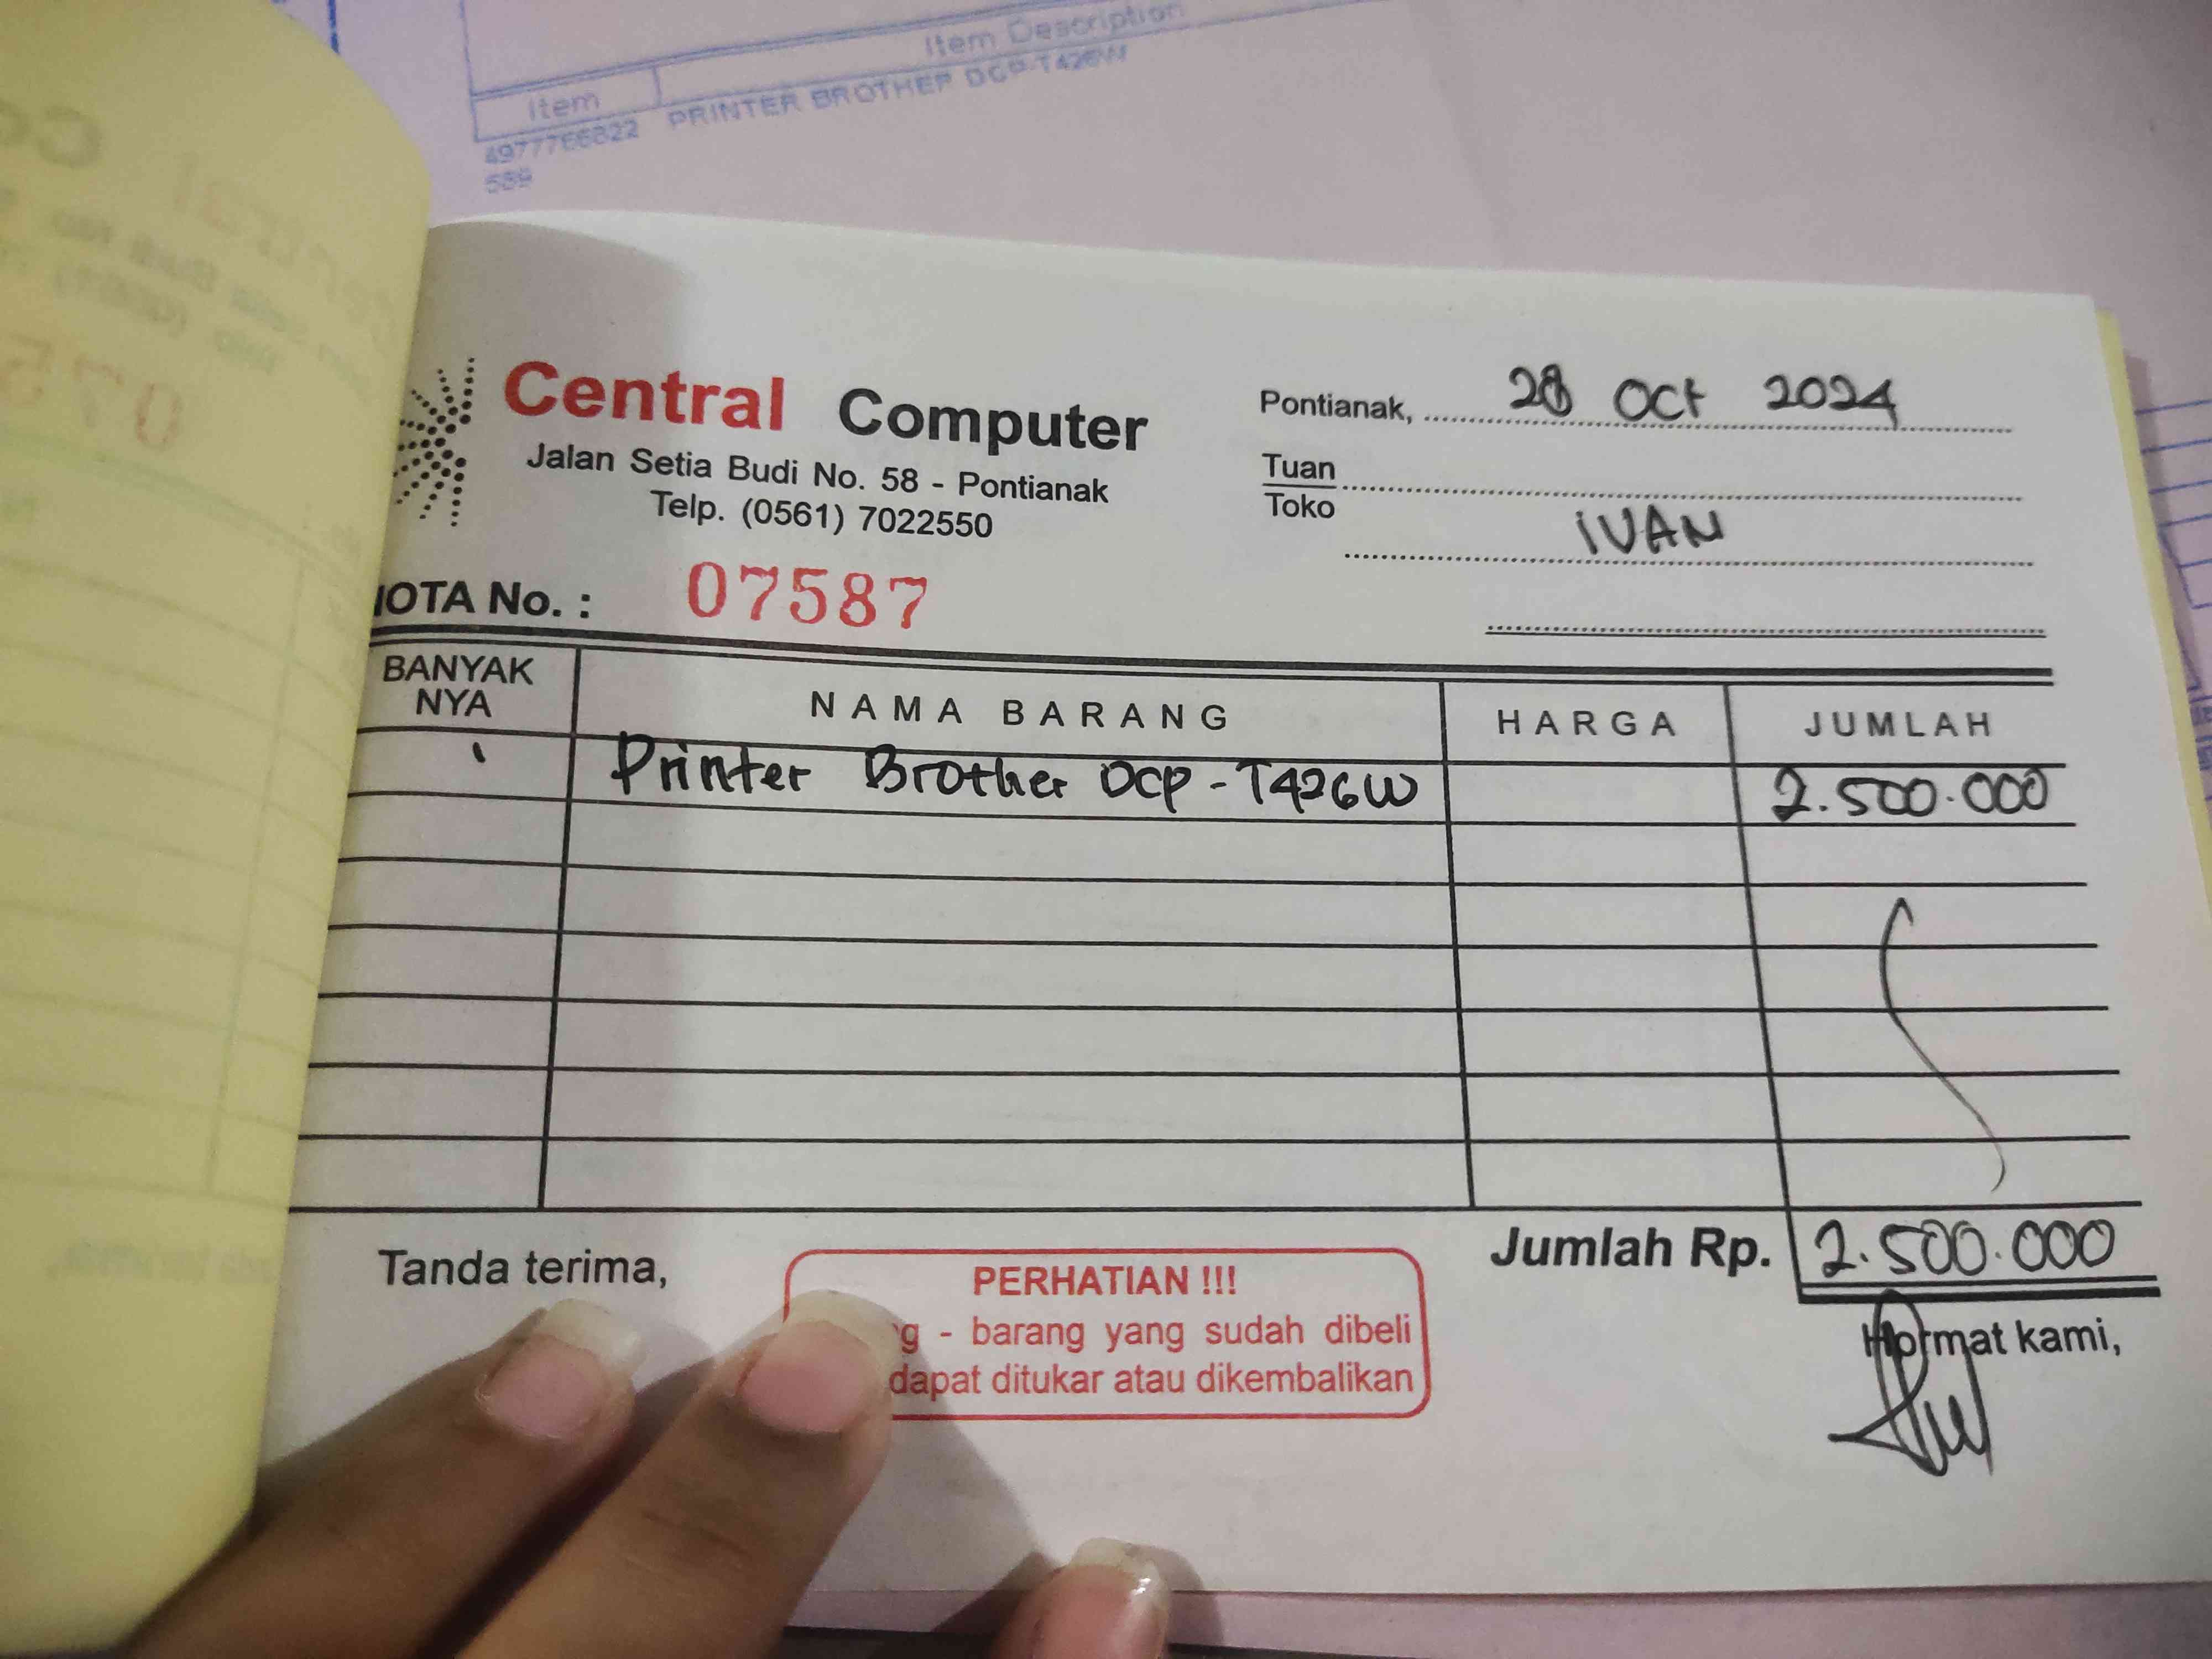 Item Description
Item
PRINTER BROTHER DCP-T426W
4977766822
589
Central Computer
Jalan Setia Budi No. 58 - Pontianak
Telp. (0561) 7022550
Pontianak, 28 Oct 2024
Tuan
Toko
IVAN
OTA No. : 07587
BANYAK NYA NAMA BARANG HARGA JUMLAH
1 Printer Brother DCP-T426W 2.500.000
Jumlah Rp. 2.500.000
Tanda terima,
PERHATIAN !!!
g - barang yang sudah dibeli
dapat ditukar atau dikembalikan
Hormat kami,